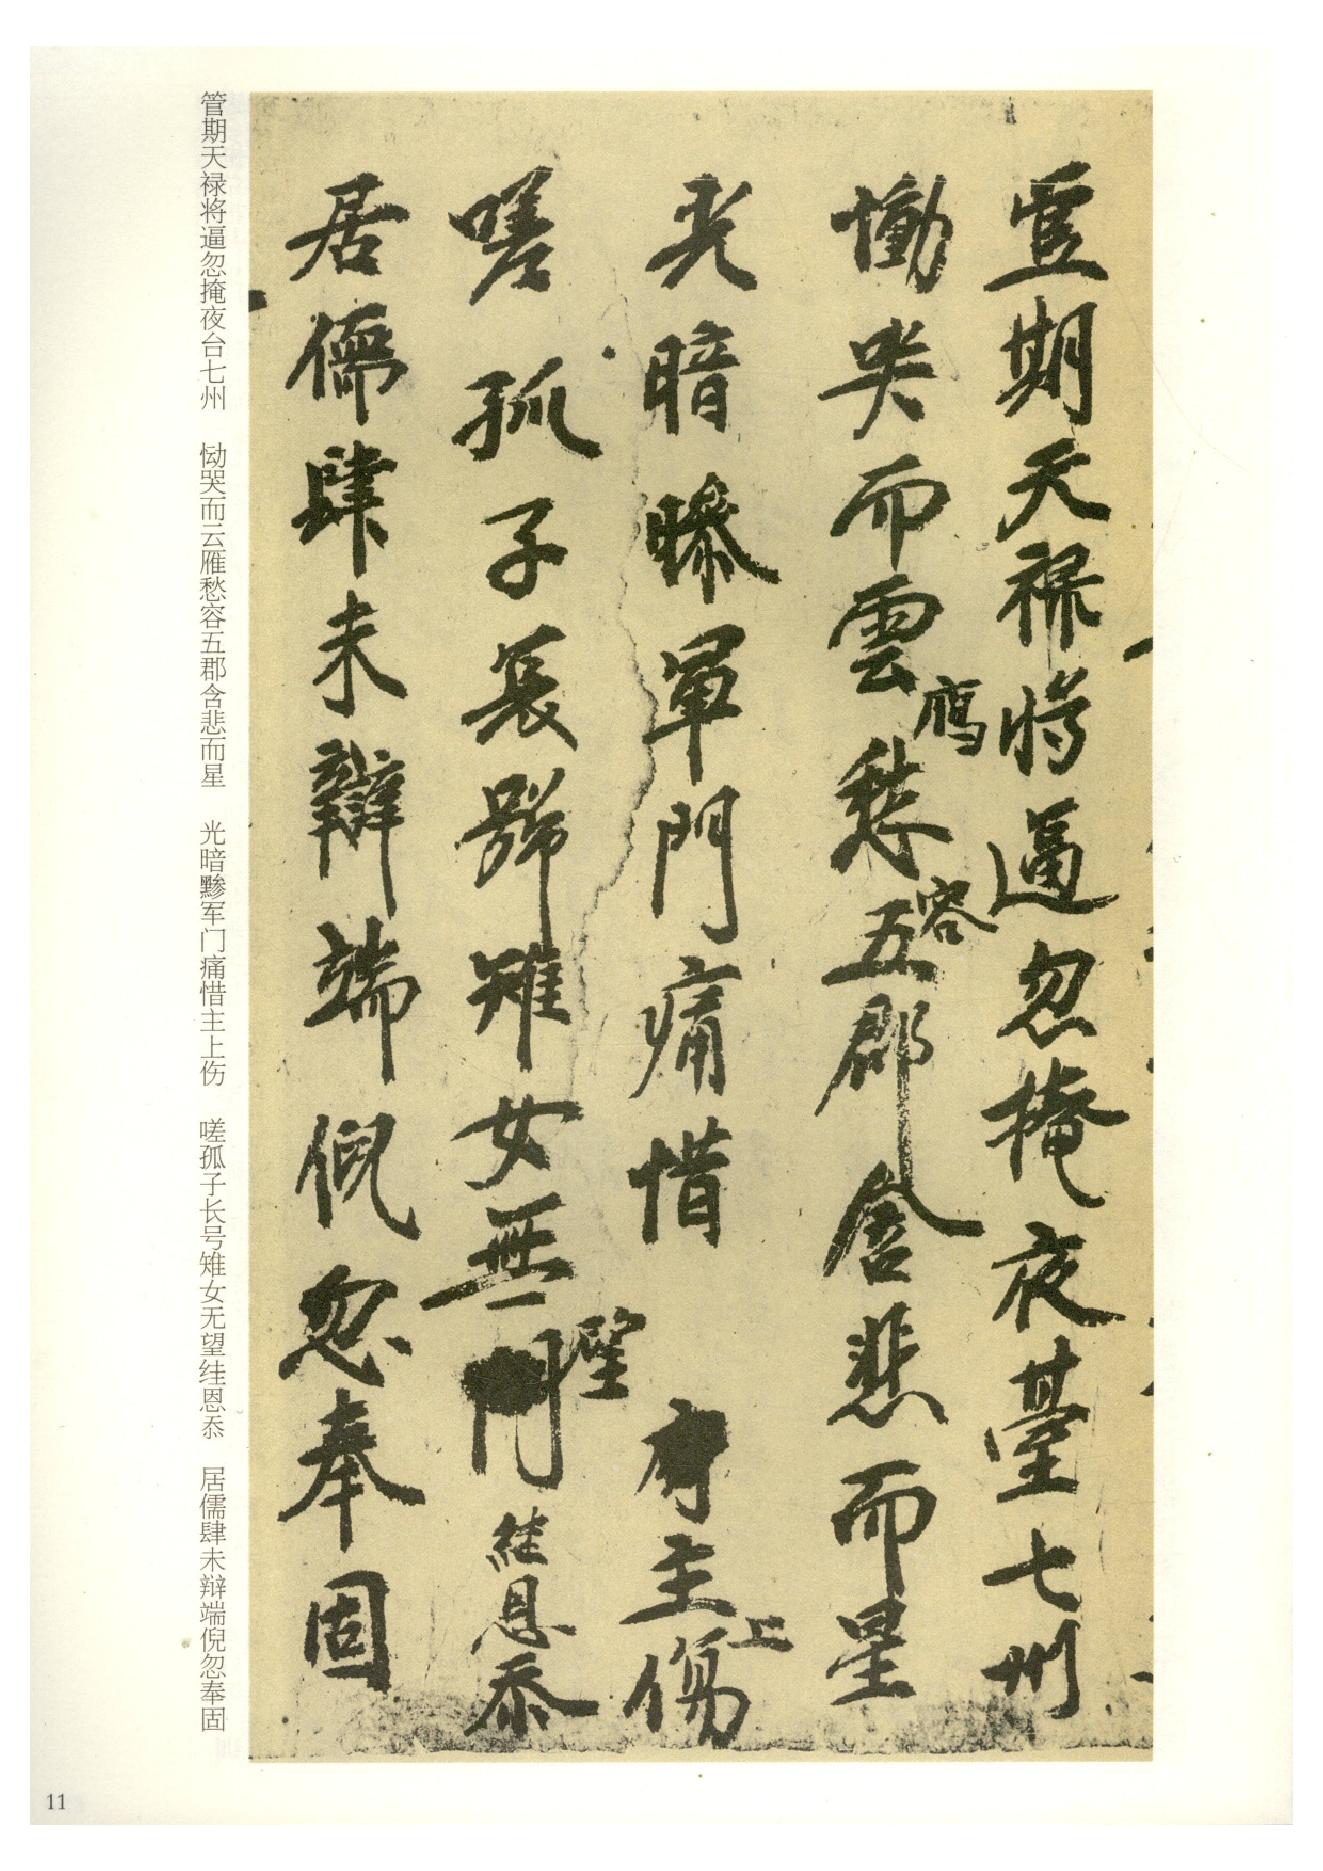 豈期天禄將逼忽掩夜臺七州
慟哭而雲鴈愁容五郡含悲而星
光暗黲軍門痛惜主上傷
嗟孤子長號雉女無望絓恩忝
居儒肆未辯端倪忽奉固
管期天禄将逼忽掩夜台七州 恸哭而云雁愁容五郡含悲而星 光暗黪军门痛惜主上伤 嗟孤子长号雉女无望絓恩忝 居儒肆未辩端倪忽奉固
11